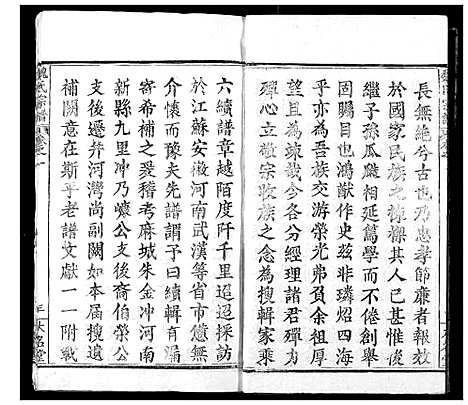 長無絶兮古也乃忠孝節廉者報效
於國家民族之樣樑其人
繼子孫瓜瓞相延篤學而不倦創舉
固矚目也鴻猷作亦非璘炤四海
乎亦為吾族交游榮光弗負余祖厚
望且為竦裁今多分經理諸君殫力
竭誠敬宗收族之念為搜輯家乘
六續譜章越陌度阡千里迢迢採訪
於江蘇安徽河南武漢等省市憶無
介懷而豫夫先譜謂予曰續輯有漏
審希補之稽考麻城朱金冲河南
新縣九里冲乃懷公支後裔伯榮公
支後遷弁河灣尚副闕如本屆搜
補闕意在斯乎老譜文獻一一附載
魏氏宗譜
大名堂